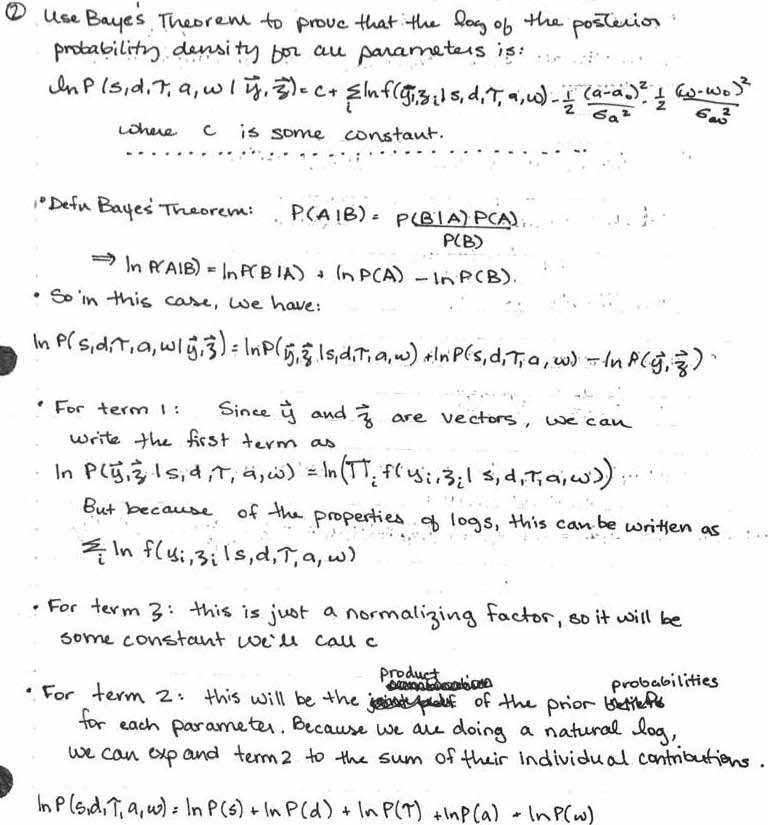 ② Use Baye's Theorem to prove that the log of the posterior
probability density for all parameters is:
ln P(s,d,T,a,w | y⃗,z⃗) = c + Σᵢ ln f(yᵢ,zᵢ | s,d,T,a,w) - 1/2 (a-a₀)²/σₐ² - 1/2 (w-w₀)²/σ_w²
where c is some constant.
• Defn Bayes' Theorem: P(A|B) = P(B|A) P(A) / P(B)
⇒ ln P(A|B) = ln P(B|A) + ln P(A) - ln P(B).
• So in this case, we have:
ln P(s,d,T,a,w | y⃗,z⃗) = ln P(y⃗,z⃗ | s,d,T,a,w) + ln P(s,d,T,a,w) - ln P(y⃗,z⃗)
• For term 1: Since y⃗ and z⃗ are vectors, we can
write the first term as
ln P(y⃗,z⃗ | s,d,T,a,w) = ln(Πᵢ f(yᵢ,zᵢ | s,d,T,a,w))
But because of the properties of logs, this can be written as
Σᵢ ln f(yᵢ,zᵢ | s,d,T,a,w)
• For term 3: this is just a normalizing factor, so it will be
some constant we'll call c
• For term 2: this will be the product of the prior probabilities
for each parameter. Because we are doing a natural log,
we can expand term 2 to the sum of their individual contributions.
ln P(s,d,T,a,w) = ln P(s) + ln P(d) + ln P(T) + ln P(a) + ln P(w)